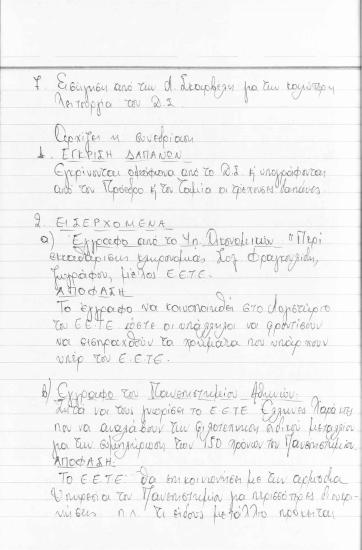 7. Εισήγηση από την Λ. Σκαρβέλη για την καλύτερη
λειτουργία του Δ.Σ.
Αρχίζει η συνεδρίαση
1. ΕΓΚΡΙΣΗ ΔΑΠΑΝΩΝ
Εγκρίνονται ομόφωνα από το Δ.Σ. & υπογράφονται
από τον Πρόεδρο & τον Ταμία οι τρέχουσες δαπάνες.
2. ΕΙΣΕΡΧΟΜΕΝΑ
α) Έγγραφο από το Υπ. Οικονομικών "Περί
εκκαθαρίσεως κληρονομίας Σοφ. Φραγκουλίδη,
ζωγράφου, μέλος Ε.Ε.Τ.Ε.
ΑΠΟΦΑΣΗ
Το έγγραφο να κοινοποιηθεί στο Λογιστήριο
του ΕΕΤΕ ώστε οι υπάλληλοι να φροντίσουν
να εισπραχθούν τα χρήματα που υπάρχουν
υπέρ του Ε.Ε.Τ.Ε.
β) Έγγραφο του Πανεπιστημίου Αθηνών.
Ζητά να τους γνωρίσει το Ε.Ε.Τ.Ε. Έλληνες Χαράκτες
που να αναλάβουν την φιλοτέχνηση ειδικού μεταλλίου
για την συμπλήρωση των 150 χρόνων του Πανεπιστημίου.
ΑΠΟΦΑΣΗ:
Το Ε.Ε.Τ.Ε. θα επικοινωνήσει με την αρμόδια
Υπηρεσία του Πανεπιστημίου για περισσότερες διευκρι-
νήσεις π.χ. τι είδους μετάλλιο πρόκειται